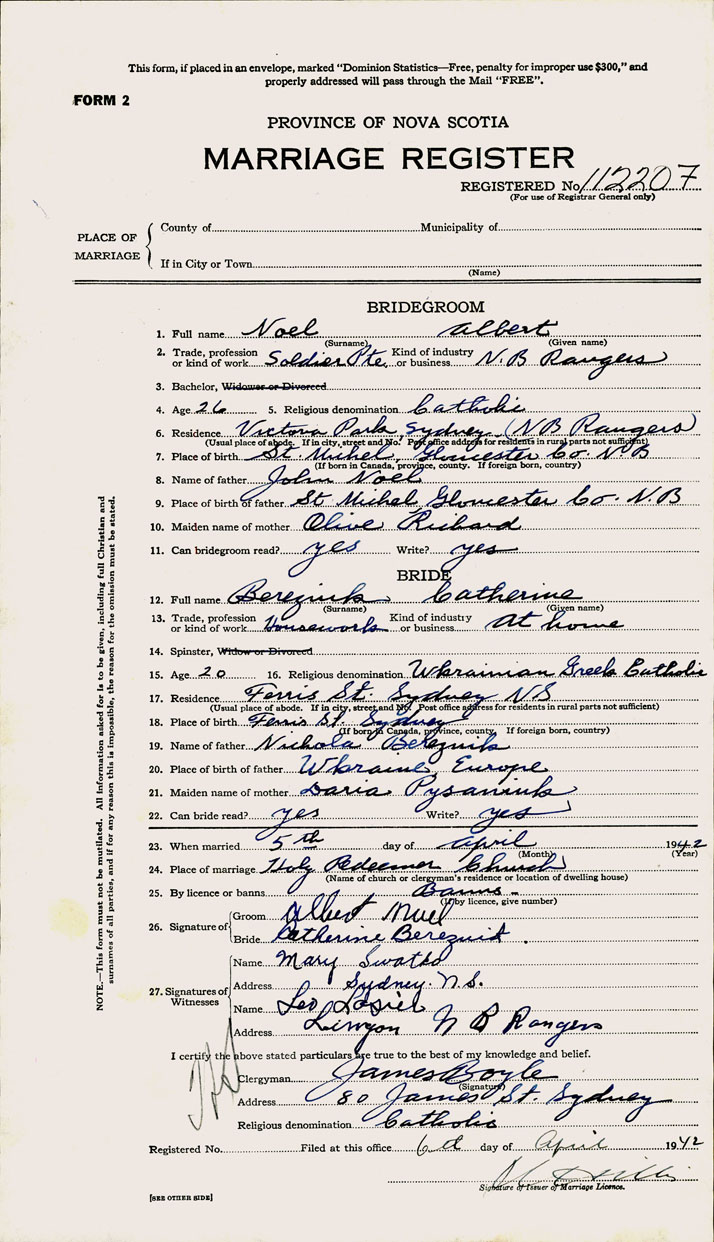 This form, if placed in an envelope, marked "Dominion Statistics—Free, penalty for improper use $300," and
properly addressed will pass through the Mail "FREE".
FORM 2
PROVINCE OF NOVA SCOTIA
MARRIAGE REGISTER
REGISTERED No. 112207
(For use of Registrar General only)
PLACE OF MARRIAGE
County of Municipality of
If in City or Town
(Name)
BRIDEGROOM
1. Full name Noel Albert
(Surname) (Given name)
2. Trade, profession or kind of work Soldier Pte. Kind of industry or business N.B Rangers
3. Bachelor, Widower or Divorced
4. Age 26 5. Religious denomination Catholic
6. Residence Victoria Park, Sydney (N B Rangers)
(Usual place of abode. If in city, street and No. Post office address for residents in rural parts not sufficient)
7. Place of birth St. Michel, Gloucester Co. N.B
(If born in Canada, province, county. If foreign born, country)
8. Name of father John Noel
9. Place of birth of father St Michel Gloucester Co. N.B
10. Maiden name of mother Olive Richard
11. Can bridegroom read? yes Write? yes
BRIDE
12. Full name Bereznik Catherine
(Surname) (Given name)
13. Trade, profession or kind of work Housework Kind of industry or business At home
14. Spinster, Widow or Divorced
15. Age 20 16. Religious denomination Ukrainian Greek Catholic
17. Residence Ferris St. Sydney N S
(Usual place of abode. If in city, street and No. Post office address for residents in rural parts not sufficient)
18. Place of birth Ferris St. Sydney
(If born in Canada, province, county. If foreign born, country)
19. Name of father Nichola Bereznik
20. Place of birth of father Ukraine, Europe
21. Maiden name of mother Daria Pysaniuk
22. Can bride read? yes Write? yes
23. When married 5th day of April 1942
(Month) (Year)
24. Place of marriage Holy Redeemer Church
(Name of church or clergyman's residence or location of dwelling house)
25. By licence or banns Banns
(If by licence, give number)
26. Signature of
Groom Albert Nuel
Bride Catherine Bereznik
27. Signatures of Witnesses
Name Mary Swatko
Address Sydney. N.S.
Name Leo Losier
Address N B Rangers
I certify the above stated particulars are true to the best of my knowledge and belief.
Clergyman James Boyle
(Signature)
Address 80 James St. Sydney
Religious denomination Catholic
Registered No. Filed at this office 6th day of April 1942
Signature of Issuer of Marriage Licence.
[SEE OTHER SIDE]
NOTE.—This form must not be mutilated. All information asked for is to be given, including full Christian and
surnames of all parties, and if for any reason this is impossible, the reason for the omission must be stated.